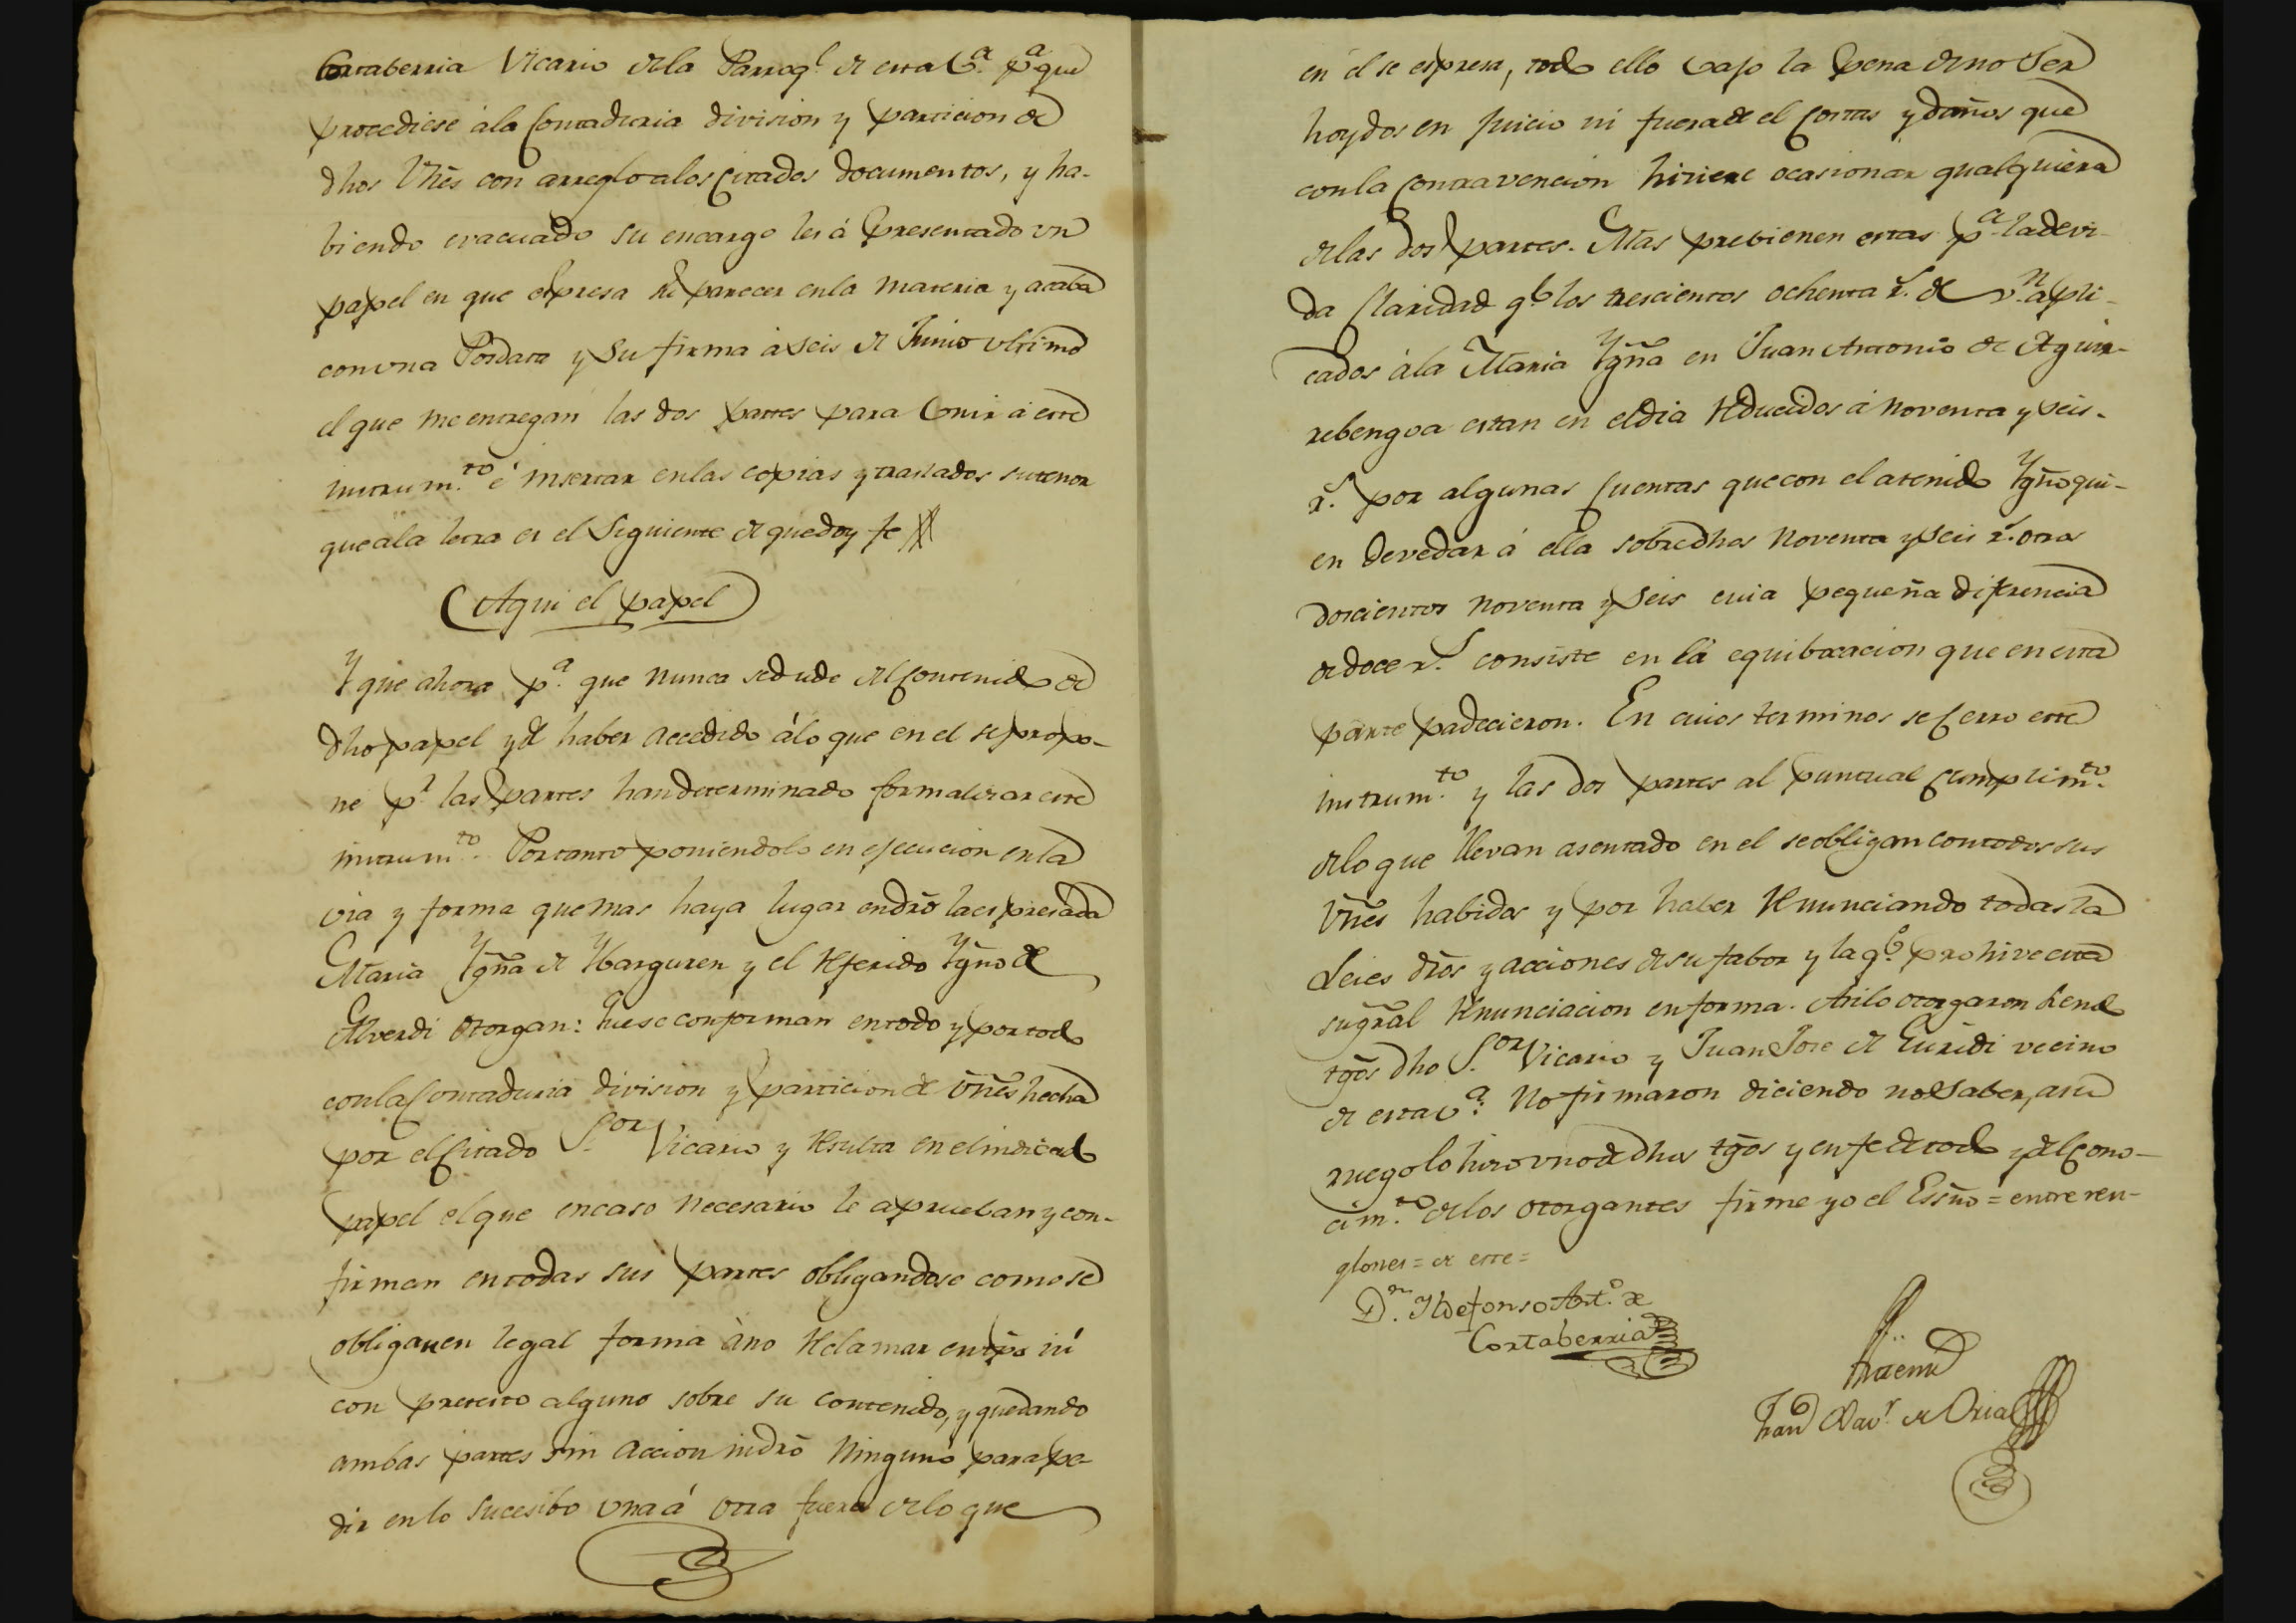 Cortaberria Vicario de la Parroql. de esta V.a p.a que
procediese â la Contaduria division y particion de
dhos Vñes con arreglo a los Citados documentos, y ha-
biendo evacuado su encargo les á Presentado vn
papel en que expresa su parecer en la materia y acaba
con vna Posdata y su firma à seis de Junio vltimo
el que me entregan las dos partes para Vnir á este
instrum.to é insertar en las copias y traslados su tenor
que a la letra es el Siguiente de que doy fe
Aqui el papel
Y que ahora p.a que nunca se dude del Contenido de
dho papel y de haber accedido á lo que en el se propo-
ne p.r las partes han determinado formalizar este
instrum.to Por tanto poniendolo en ejecucion en la
via y forma que mas haya lugar en dro la espresada
Maria Ygña de Ybarguren y el referido Ygño de
Alverdi otorgan: Que se conforman en todo y por todo
con la Contaduria division y particion de Vñes hecha
por el Citado S.or Vicario y resulta en el indicado
papel el que en caso necesario le aprueban y con-
firman en todas sus partes obligandose como se
obligan en legal forma á no reclamar en tpo ni
con pretesto alguno sobre su contenido, y quedando
ambas partes sin accion ni dro ninguno para pe-
dir en lo sucesibo vna á otra fuera de lo que
en él se espresa, todo ello vajo la pena de no ser
hoydos en juicio ni fuera de el Costas y daños que
con la Contravencion hiciere ocasionar qualquiera
de las dos partes. Mas prebienen estas p.a la devi-
da Claridad q.e los trescientos ochenta r.s de v.n apli-
cados á la Maria Ygña en Juan Antonio de Aguir-
rebengoa estan en el dia reducidos á noventa y seis
r.s por algunas Cuentas que con el a tenido Ygño qui-
en devedar á ella sobre dhos noventa y seis r.s otros
doscientos noventa y seis cuia pequeña diferencia
de doce r.s consiste en la equibocacion que en esta
parte padecieron. En cuios terminos se Cerro este
instrum.to y las dos partes al puntual Cumplim.to
de lo que llevan asentado en el se obligan con todos sus
Vñes habidos y por haber renunciando todas las
Leies dros y acciones de su fabor y la q.e prohive esta
su gral renunciacion en forma. Asi lo otorgaron siendo
tgos dho S.or Vicario y Juan Jose de vecino
de esta V.a: No firmaron diciendo no saber, a su
ruego lo hizo vno de dhos tgos y en fe de todo y del Cono-
cim.to de los otorgantes firme yo el Essño = entre ren-
glones = de este =
D.n Yldefonso Ant.o de
Cortaberria
Ante mi
Fran.co Xav.r de Oria